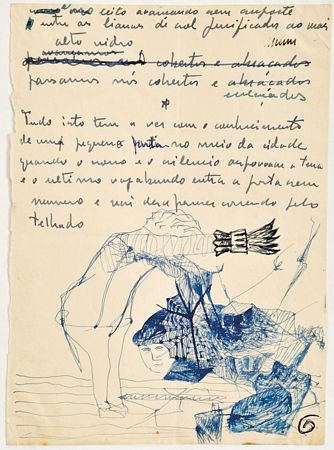 entre as lianas de sol
alto vidro
cobertos e abraçados
passamos nós cobertos e abraçados
enleados
Tudo isto tem a ver com o conhecimento
de uma pequena porta no meio da cidade
quando o novo e o silencio a terra
e o ultimo vagabundo entra a porta sem
numero e vai desaparecer correndo pelo
telhado
6